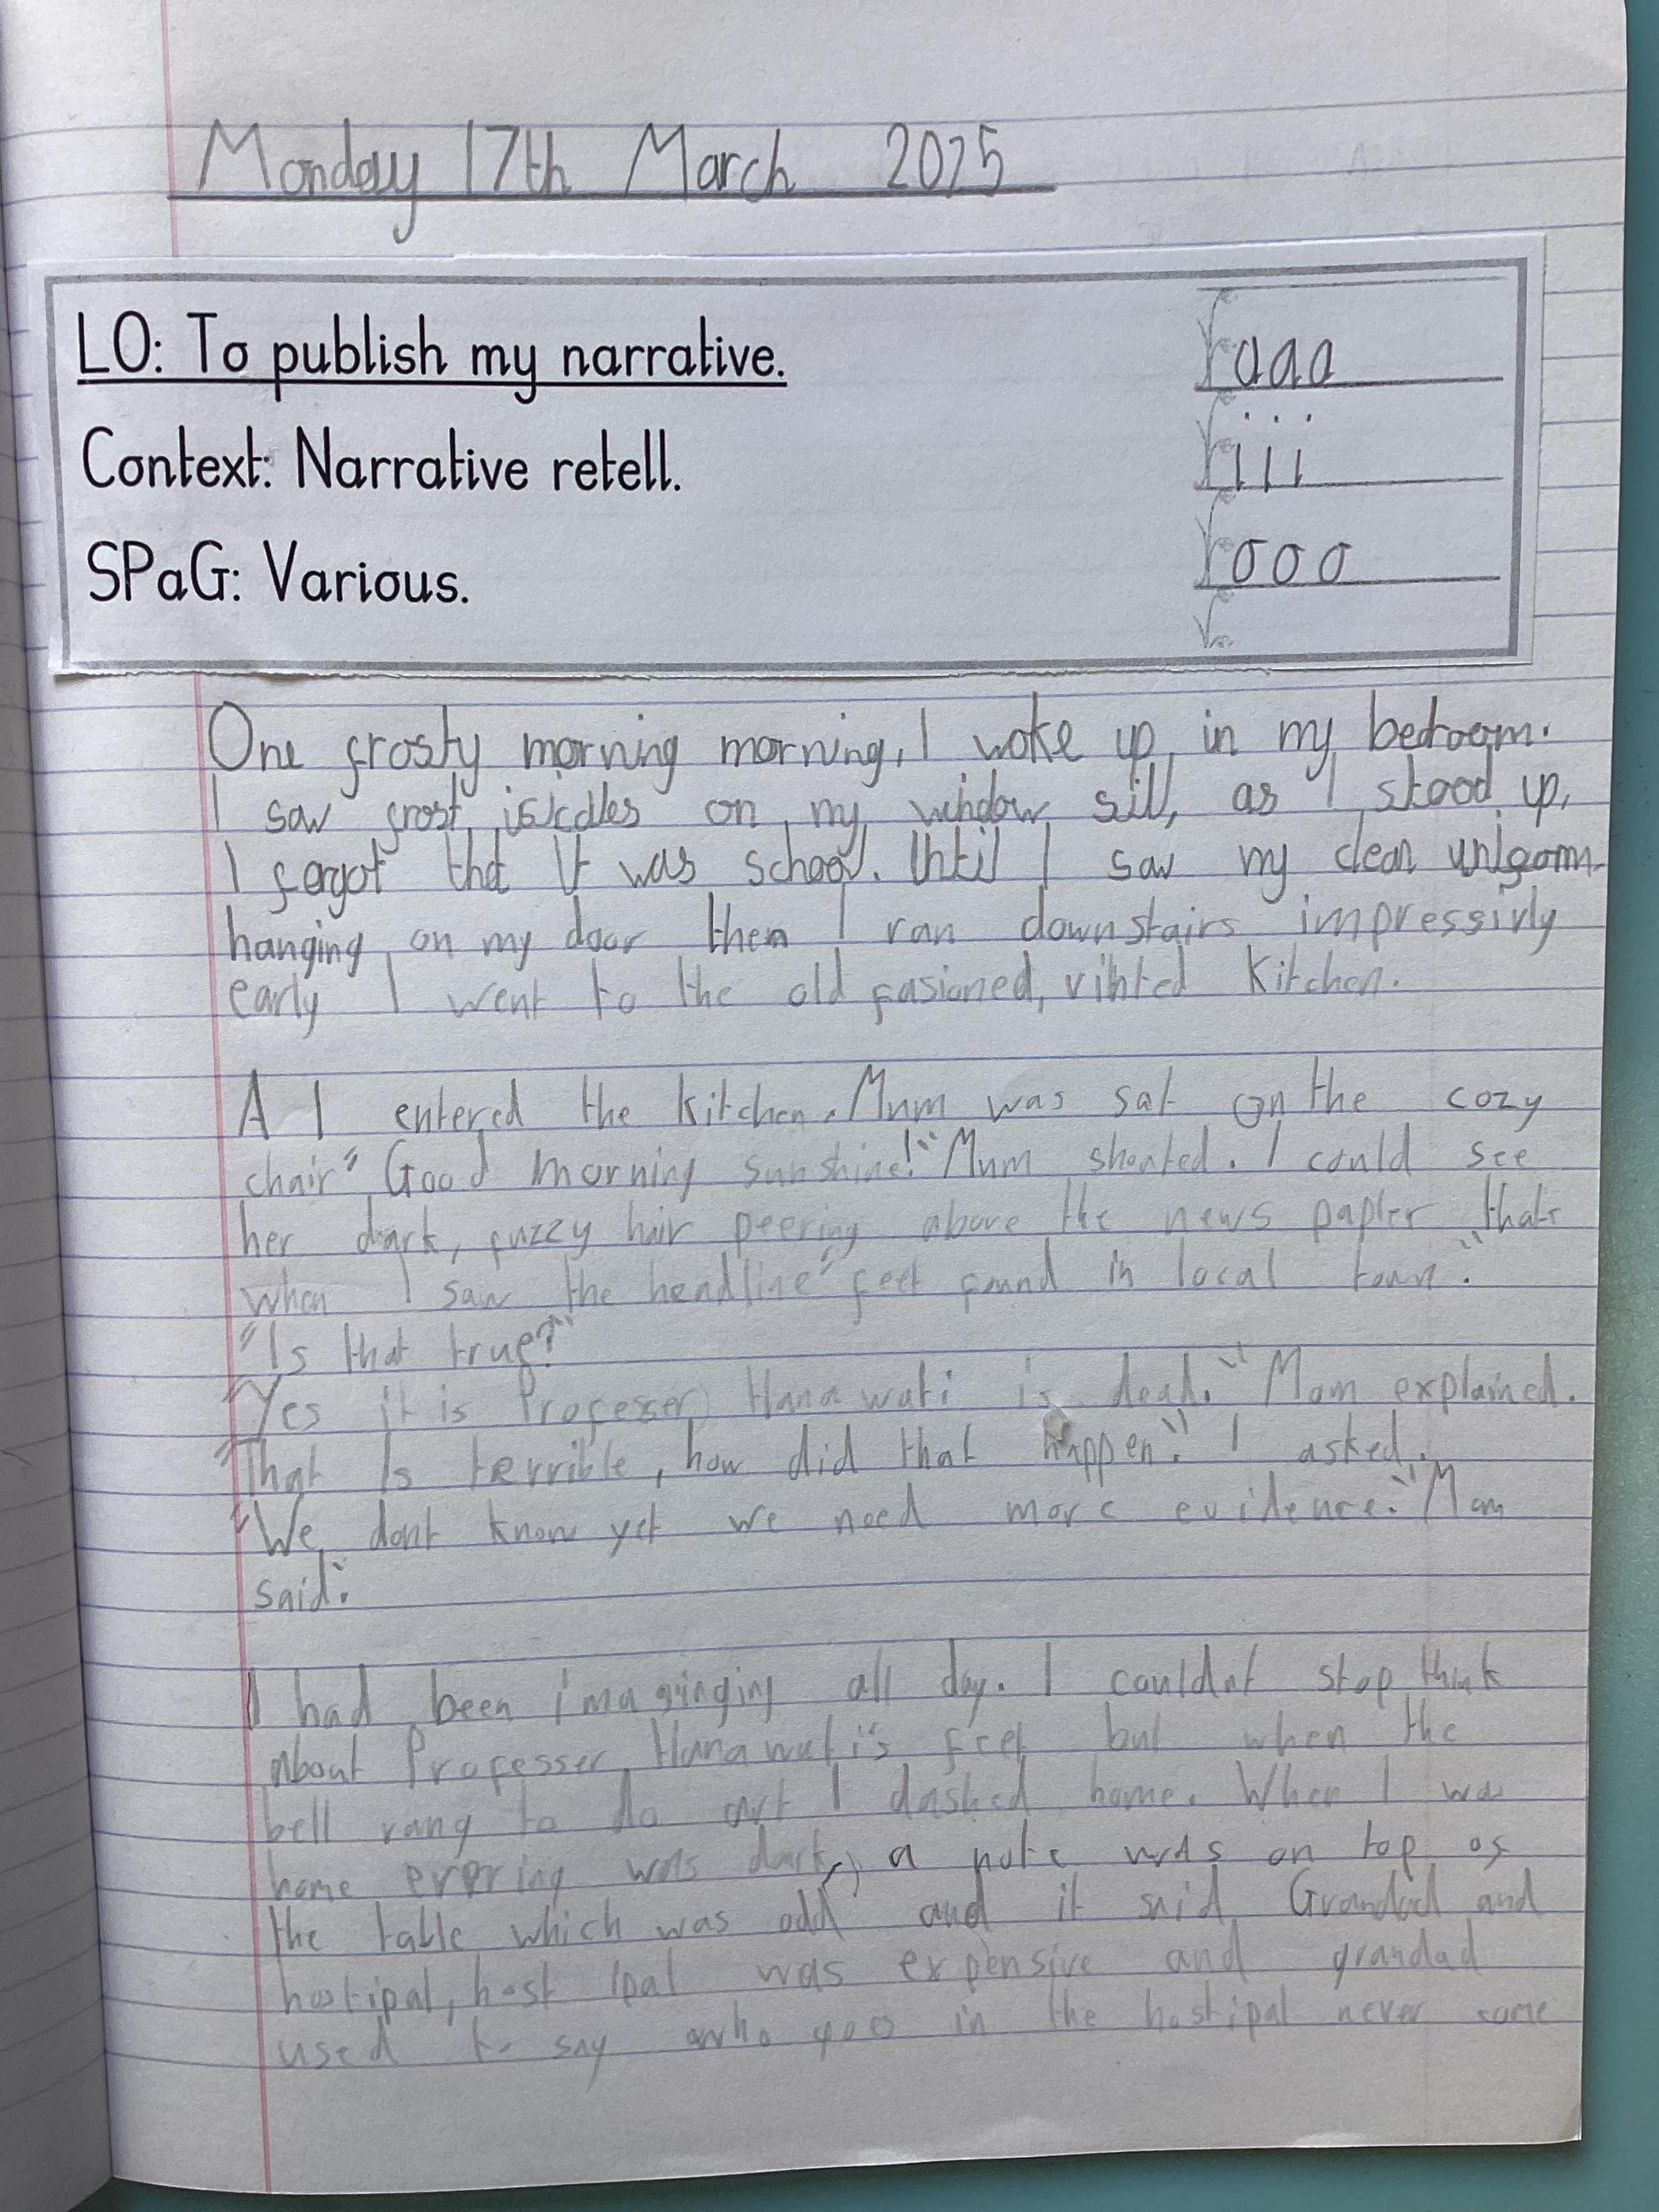 Monday 17th March 2025
LO: To publish my narrative.
Context: Narrative retell.
SPaG: Various.
aaa
iii
ooo
One frosty morning morning, I woke up in my bedroom.
I saw frost on my window sill, as I stood up,
I forgot that It was school. Until I saw my clean uniform
hanging on my door then I ran downstairs impressivly
early I went to the old fasioned, vinted kitchen.
A I entered the kitchen. Mum was sat on the cozy
chair "Good morning sunshine!" Mum shouted. I could see
her dark, fuzzy hair peering above the news papter thats
when I saw the headline "feet found in local town."
"Is that true?"
"Yes it is Professer Hanawati is dead." Mom explained.
"That Is terrible, how did that happen." I asked.
"We dont know yet we need more evidence." Mom
said.
I had been all day. I couldnt stop think
about Professer Hanawati's feet but when the
bell rang to do art I dashed home. When I was
home was dark, a note was on top of
the table which was odd and it said Grandad and
hostipal, host ipal was expensive and grandad
used to say who goes in the hostipal never come